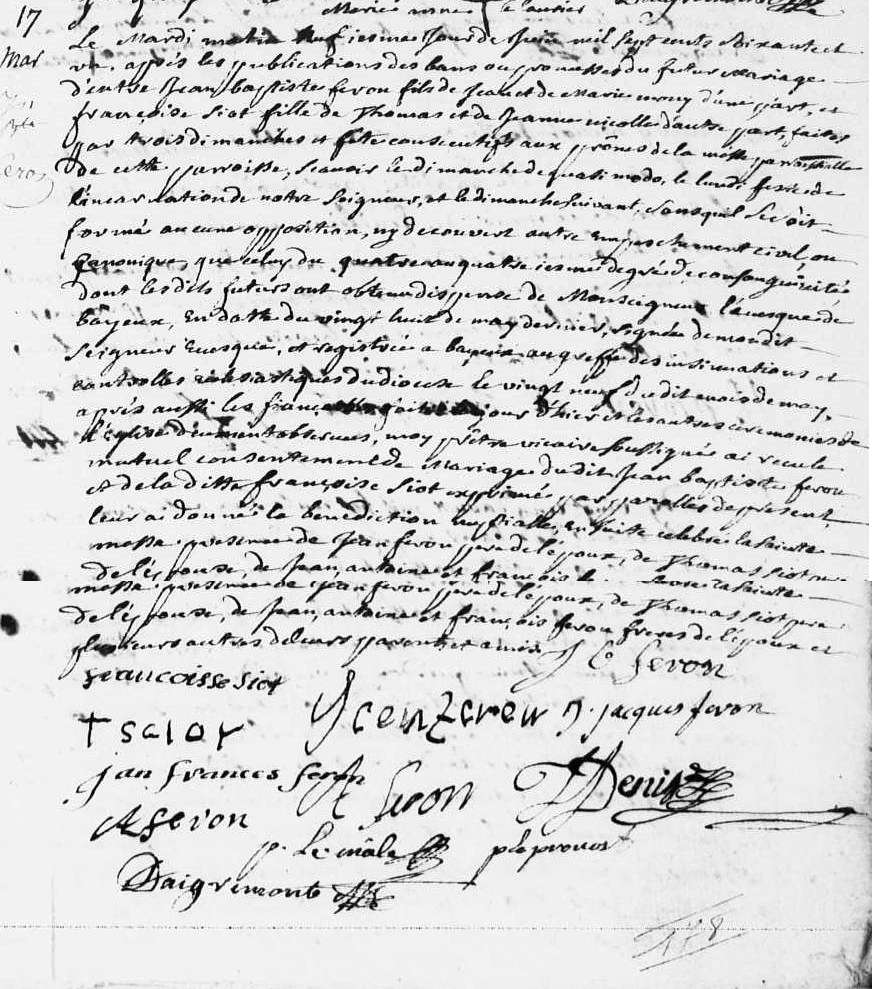 17
mar
Le Mardi matin neufiesme Jour de Juin mil sept cents soixante et
un, appés les publications des bans ou promesses du futur mariage
d'entre Jean baptiste feron fils de Jean et de Marie mony d'une part, et
françoise siot fille de Thomas et de Jeanne nicolle d'autre part, faites
par trois dimanches et fête consecutifs aux prônes de la messe paroissialle
de cette parroisse, scavoir le dimanche de quasimodo, le lundi ferie de
l'incarnation de notre seigneur, et le dimanche suivant, sans quil se soit
formé aucune opposition, ny decouvert autre empeschement civil, ou
Canonique, que celuy du quatre au quatriesme degré de consanguinité
dont les dits futurs ont obtenu dispense de Monseigneur l'evesque de
bayeux, En datte du vingt huit de may dernier, signée de mondit
seigneur Evesque, et registrée a bayeux au greffe des insinuations et
controlles eclesiastiques du diocese le vingt neuf dudit mois de may,
apriés aussi les fiançailles faites du jour d'hier et les autres ceremonies de
l'église deument observées, moy prêtre vicaire soussigné ai reçu le
mutuel consentement de Mariage dudit Jean baptiste feron
et de la ditte françoise siot exprimée par parolles de present,
leur ai donné la benediction nuptialle, Ensuite celebré la sainte
messe presence de Jean feron pere de l'époux, de Thomas siot pere
de l'épouse, de Jean, antoine et françois
messe presence de Jean feron pere de l'époux, de Thomas siot pere
de l'épouse, de Jean, antoine et françois feron freres de l'époux et
plusieurs autres de leurs parents et amis.
J B feron
francoisse siot
t saiot
J. jacques feron
jan frances feron
A feron
Denis
A feron
p. Le mâle
p le provost
Daigremont